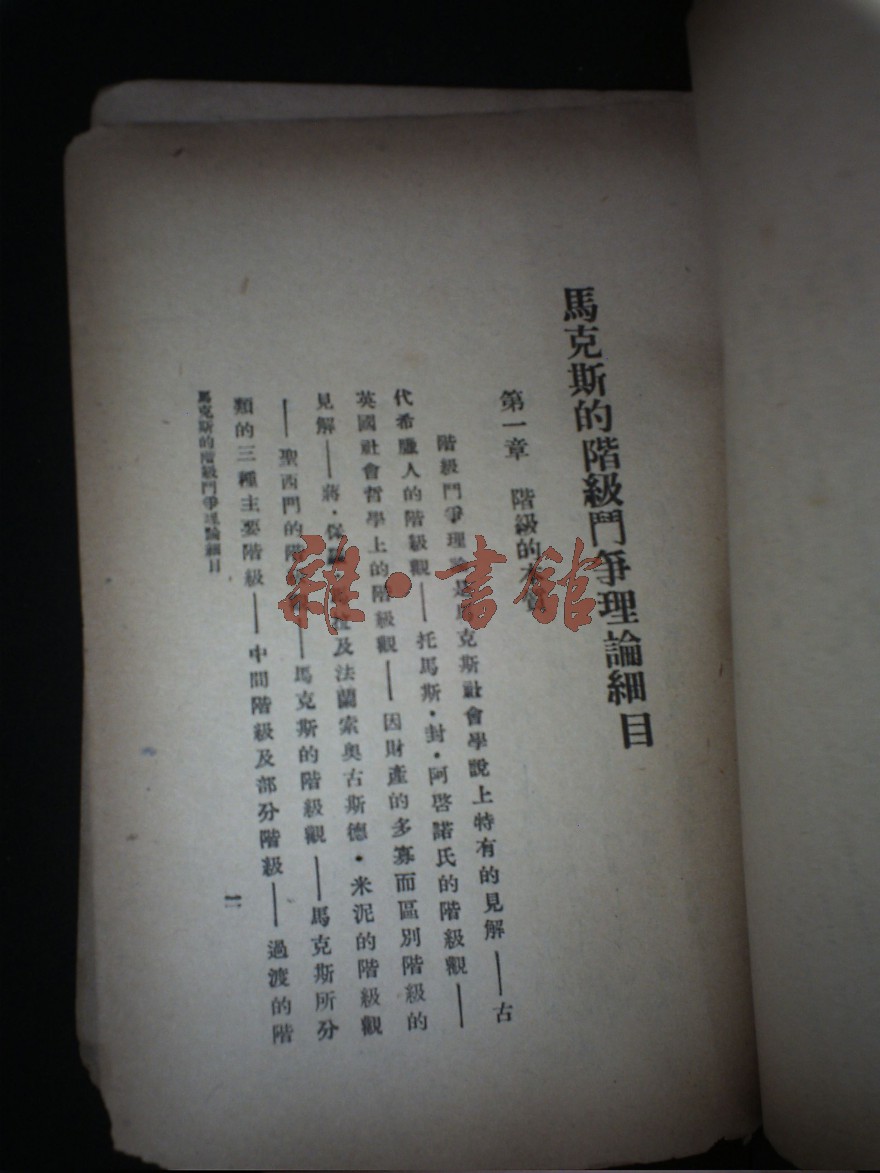 馬克斯的階級鬥爭理論細目
第一章　階級的本質
階級鬥爭理論是馬克斯社會學說上特有的見解——古
代希臘人的階級觀——托馬斯·封·阿啓諾氏的階級觀——
英國社會哲學上的階級觀——因財產的多寡而區別階級的
見解——蔣·保羅及法蘭索奧古斯德·米泥的階級觀
——聖西門的階——馬克斯的階級觀——馬克斯所分
類的三種主要階級——中間階級及部分階級——過渡的階
馬克斯的階級鬥爭理論細目
一
雜·書館